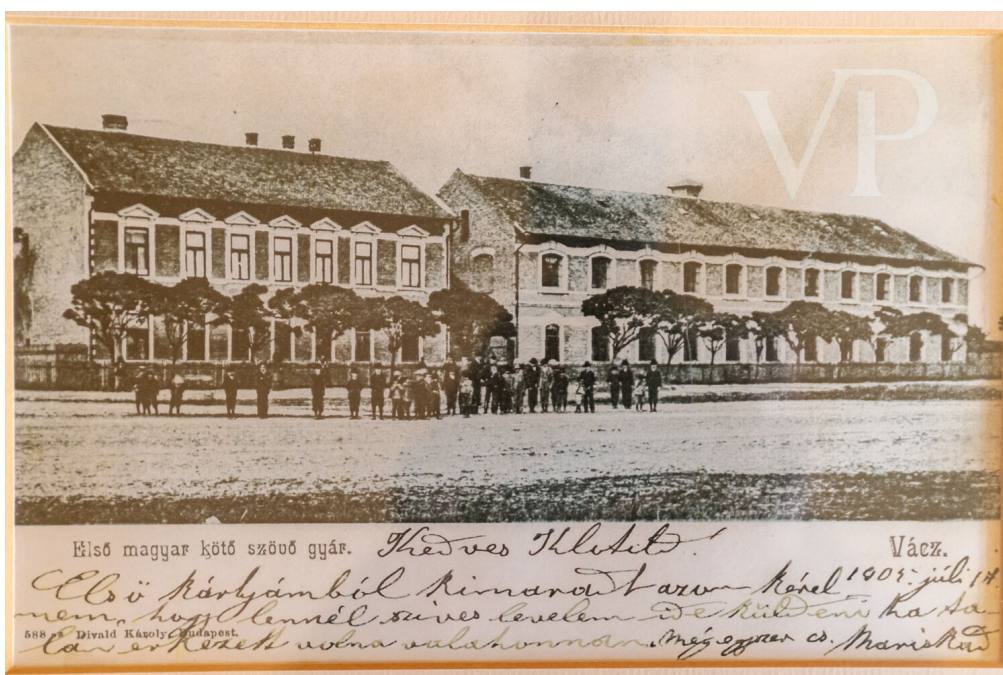 VP
Első magyar kötő szövő gyár. Kedves Klotild!
Vácz.
Első kártyámból kimaradt azon kérel 1905. júli 14
mem, hogy lennél szives levelem ide küldeni ha ta-
588 Divald Károly, Budapest.
lán érkezett volna valahonnan. még egyszer cs. Mariskád